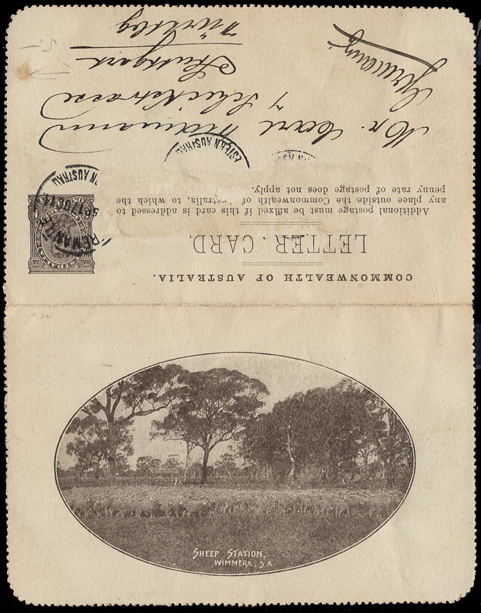 COMMONWEALTH OF AUSTRALIA.
LETTER CARD.
Additional postage must be affixed if this card is addressed to
any place outside the Commonwealth of Australia, to which the
penny rate of postage does not apply.
FREMANTLE
5 P 17 OC 11
Mr. Carl
7
Stuttgart
Germany
SHEEP STATION,
WIMMERA, S A